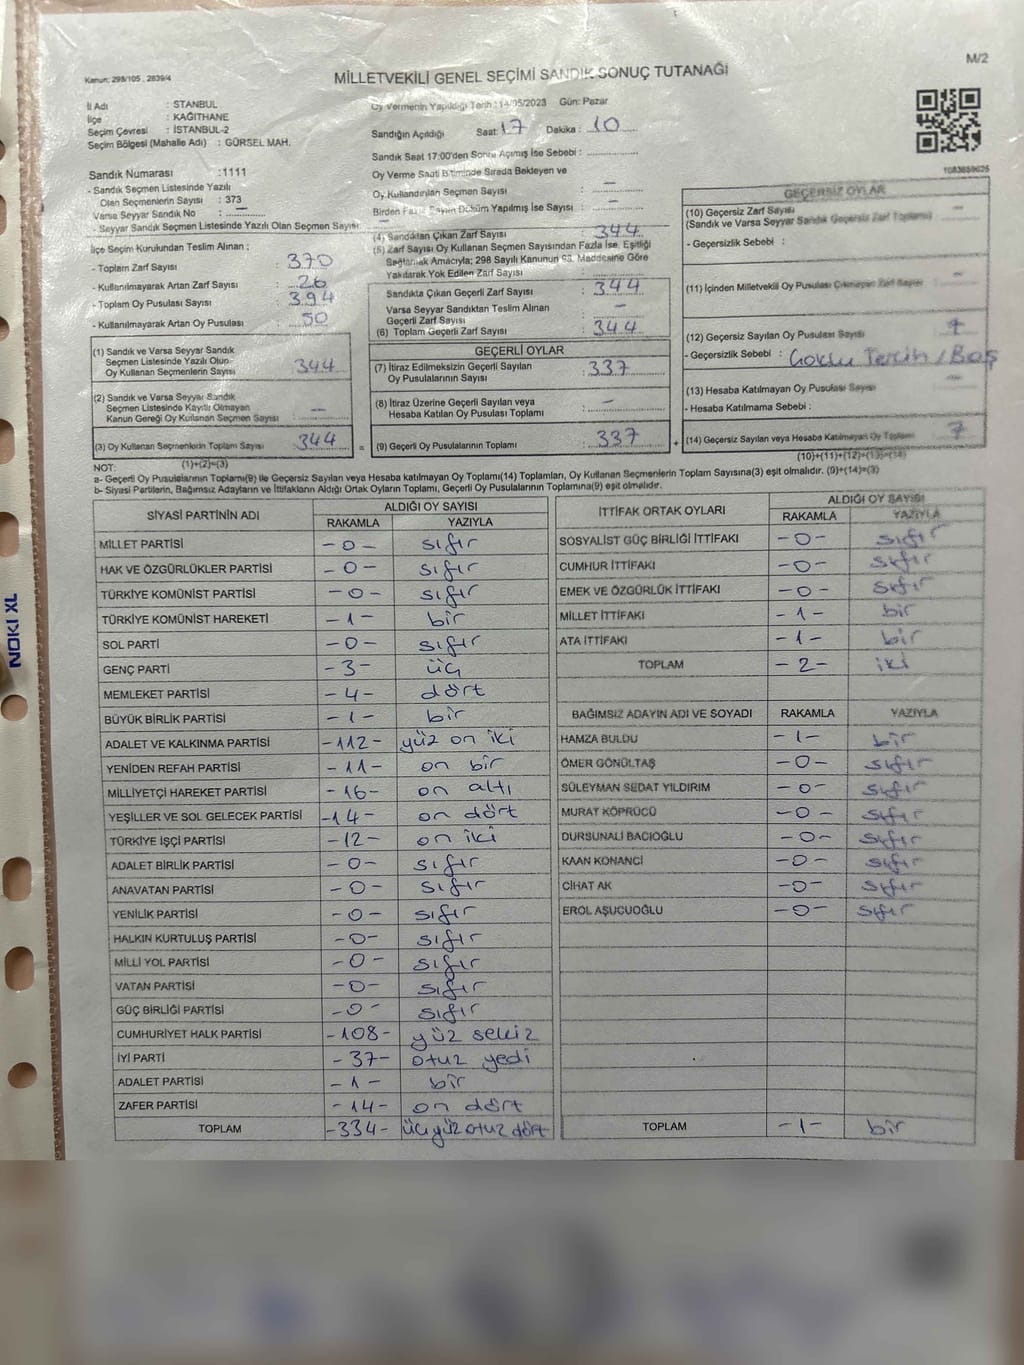 M/2
Kanun: 298/105 , 2839/4
MİLLETVEKİLİ GENEL SEÇİMİ SANDIK SONUÇ TUTANAĞI
İl Adı : STANBUL
İlçe : KAĞITHANE
Seçim Çevresi : İSTANBUL-2
Seçim Bölgesi (Mahalle Adı) : GÜRSEL MAH.
Sandık Numarası :1111
- Sandık Seçmen Listesinde Yazılı
Olan Seçmenlerin Sayısı : 373
Varsa Seyyar Sandık No :
Seyyar Sandık Seçmen Listesinde Yazılı Olan Seçmen Sayısı: -
İlçe Seçim Kurulundan Teslim Alınan ;
- Toplam Zarf Sayısı : 370
- Kullanılmayarak Artan Zarf Sayısı : 26
- Toplam Oy Pusulası Sayısı : 394
- Kullanılmayarak Artan Oy Pusulası : 50
(1) Sandık ve Varsa Seyyar Sandık
Seçmen Listesinde Yazılı Olup
Oy Kullanan Seçmenlerin Sayısı 344
(2) Sandık ve Varsa Seyyar Sandık
Seçmen Listesinde Kayıtlı Olmayan
Kanun Gereği Oy Kullanan Seçmen Sayısı -
(3) Oy Kullanan Seçmenlerin Toplam Sayısı 344
(1)+(2)=(3)
Oy Vermenin Yapıldığı Tarih :14/05/2023 Gün: Pazar
Sandığın Açıldığı Saat: 17 Dakika : 10
Sandık Saat 17:00'den Sonra Açılmış İse Sebebi :
Oy Verme Saati Bitiminde Sırada Bekleyen ve
Oy Kullandırılan Seçmen Sayısı : -
Birden Fazla Sayım Döküm Yapılmış İse Sayısı : -
(4) Sandıktan Çıkan Zarf Sayısı : 344
(5) Zarf Sayısı Oy Kullanan Seçmen Sayısından Fazla İse, Eşitliği
Sağlamak Amacıyla; 298 Sayılı Kanunun 98. Maddesine Göre
Yakılarak Yok Edilen Zarf Sayısı :
Sandıkta Çıkan Geçerli Zarf Sayısı : 344
Varsa Seyyar Sandıktan Teslim Alınan
Geçerli Zarf Sayısı : -
(6) Toplam Geçerli Zarf Sayısı : 344
GEÇERLİ OYLAR
(7) İtiraz Edilmeksizin Geçerli Sayılan
Oy Pusulalarının Sayısı : 337
(8) İtiraz Üzerine Geçerli Sayılan veya
Hesaba Katılan Oy Pusulası Toplamı : -
(9) Geçerli Oy Pusulalarının Toplamı : 337
1083859625
GEÇERSİZ OYLAR
(10) Geçersiz Zarf Sayısı -
(Sandık ve Varsa Seyyar Sandık Geçersiz Zarf Toplamı)
- Geçersizlik Sebebi :
(11) İçinden Milletvekili Oy Pusulası Çıkmayan Zarf Sayısı -
(12) Geçersiz Sayılan Oy Pusulası Sayısı 7
- Geçersizlik Sebebi : Çoklu Tercih / Boş
(13) Hesaba Katılmayan Oy Pusulası Sayısı -
- Hesaba Katılmama Sebebi :
(14) Geçersiz Sayılan veya Hesaba Katılmayan Oy Toplamı 7
(10)+(11)+(12)+(13)=(14)
NOT:
a- Geçerli Oy Pusulalarının Toplamı(9) ile Geçersiz Sayılan veya Hesaba katılmayan Oy Toplamı(14) Toplamları, Oy Kullanan Seçmenlerin Toplam Sayısına(3) eşit olmalıdır. (9)+(14)=(3)
b- Siyasi Partilerin, Bağımsız Adayların ve İttifakların Aldığı Ortak Oyların Toplamı, Geçerli Oy Pusulalarının Toplamına(9) eşit olmalıdır.
SİYASİ PARTİNİN ADI ALDIĞI OY SAYISI
RAKAMLA YAZIYLA
MİLLET PARTİSİ -0- sıfır
HAK VE ÖZGÜRLÜKLER PARTİSİ -0- sıfır
TÜRKİYE KOMÜNİST PARTİSİ -0- sıfır
TÜRKİYE KOMÜNİST HAREKETİ -1- bir
SOL PARTİ -0- sıfır
GENÇ PARTİ -3- üç
MEMLEKET PARTİSİ -4- dört
BÜYÜK BİRLİK PARTİSİ -1- bir
ADALET VE KALKINMA PARTİSİ -112- yüz on iki
YENİDEN REFAH PARTİSİ -11- on bir
MİLLİYETÇİ HAREKET PARTİSİ -16- on altı
YEŞİLLER VE SOL GELECEK PARTİSİ -14- on dört
TÜRKİYE İŞÇİ PARTİSİ -12- on iki
ADALET BİRLİK PARTİSİ -0- sıfır
ANAVATAN PARTİSİ -0- sıfır
YENİLİK PARTİSİ -0- sıfır
HALKIN KURTULUŞ PARTİSİ -0- sıfır
MİLLİ YOL PARTİSİ -0- sıfır
VATAN PARTİSİ -0- sıfır
GÜÇ BİRLİĞİ PARTİSİ -0- sıfır
CUMHURİYET HALK PARTİSİ -108- yüz sekiz
İYİ PARTİ -37- otuz yedi
ADALET PARTİSİ -1- bir
ZAFER PARTİSİ -14- on dört
TOPLAM -334- üçyüz otuz dört
İTTİFAK ORTAK OYLARI ALDIĞI OY SAYISI
RAKAMLA YAZIYLA
SOSYALİST GÜÇ BİRLİĞİ İTTİFAKI -0- sıfır
CUMHUR İTTİFAKI -0- sıfır
EMEK VE ÖZGÜRLÜK İTTİFAKI -0- sıfır
MİLLET İTTİFAKI -1- bir
ATA İTTİFAKI -1- bir
TOPLAM -2- iki
BAĞIMSIZ ADAYIN ADI VE SOYADI RAKAMLA YAZIYLA
HAMZA BULDU -1- bir
ÖMER GÖNÜLTAŞ -0- sıfır
SÜLEYMAN SEDAT YILDIRIM -0- sıfır
MURAT KÖPRÜCÜ -0- sıfır
DURSUNALİ BACIOĞLU -0- sıfır
KAAN KONANCİ -0- sıfır
CİHAT AK -0- sıfır
EROL AŞUCUOĞLU -0- sıfır
TOPLAM -1- bir
NOKI XL